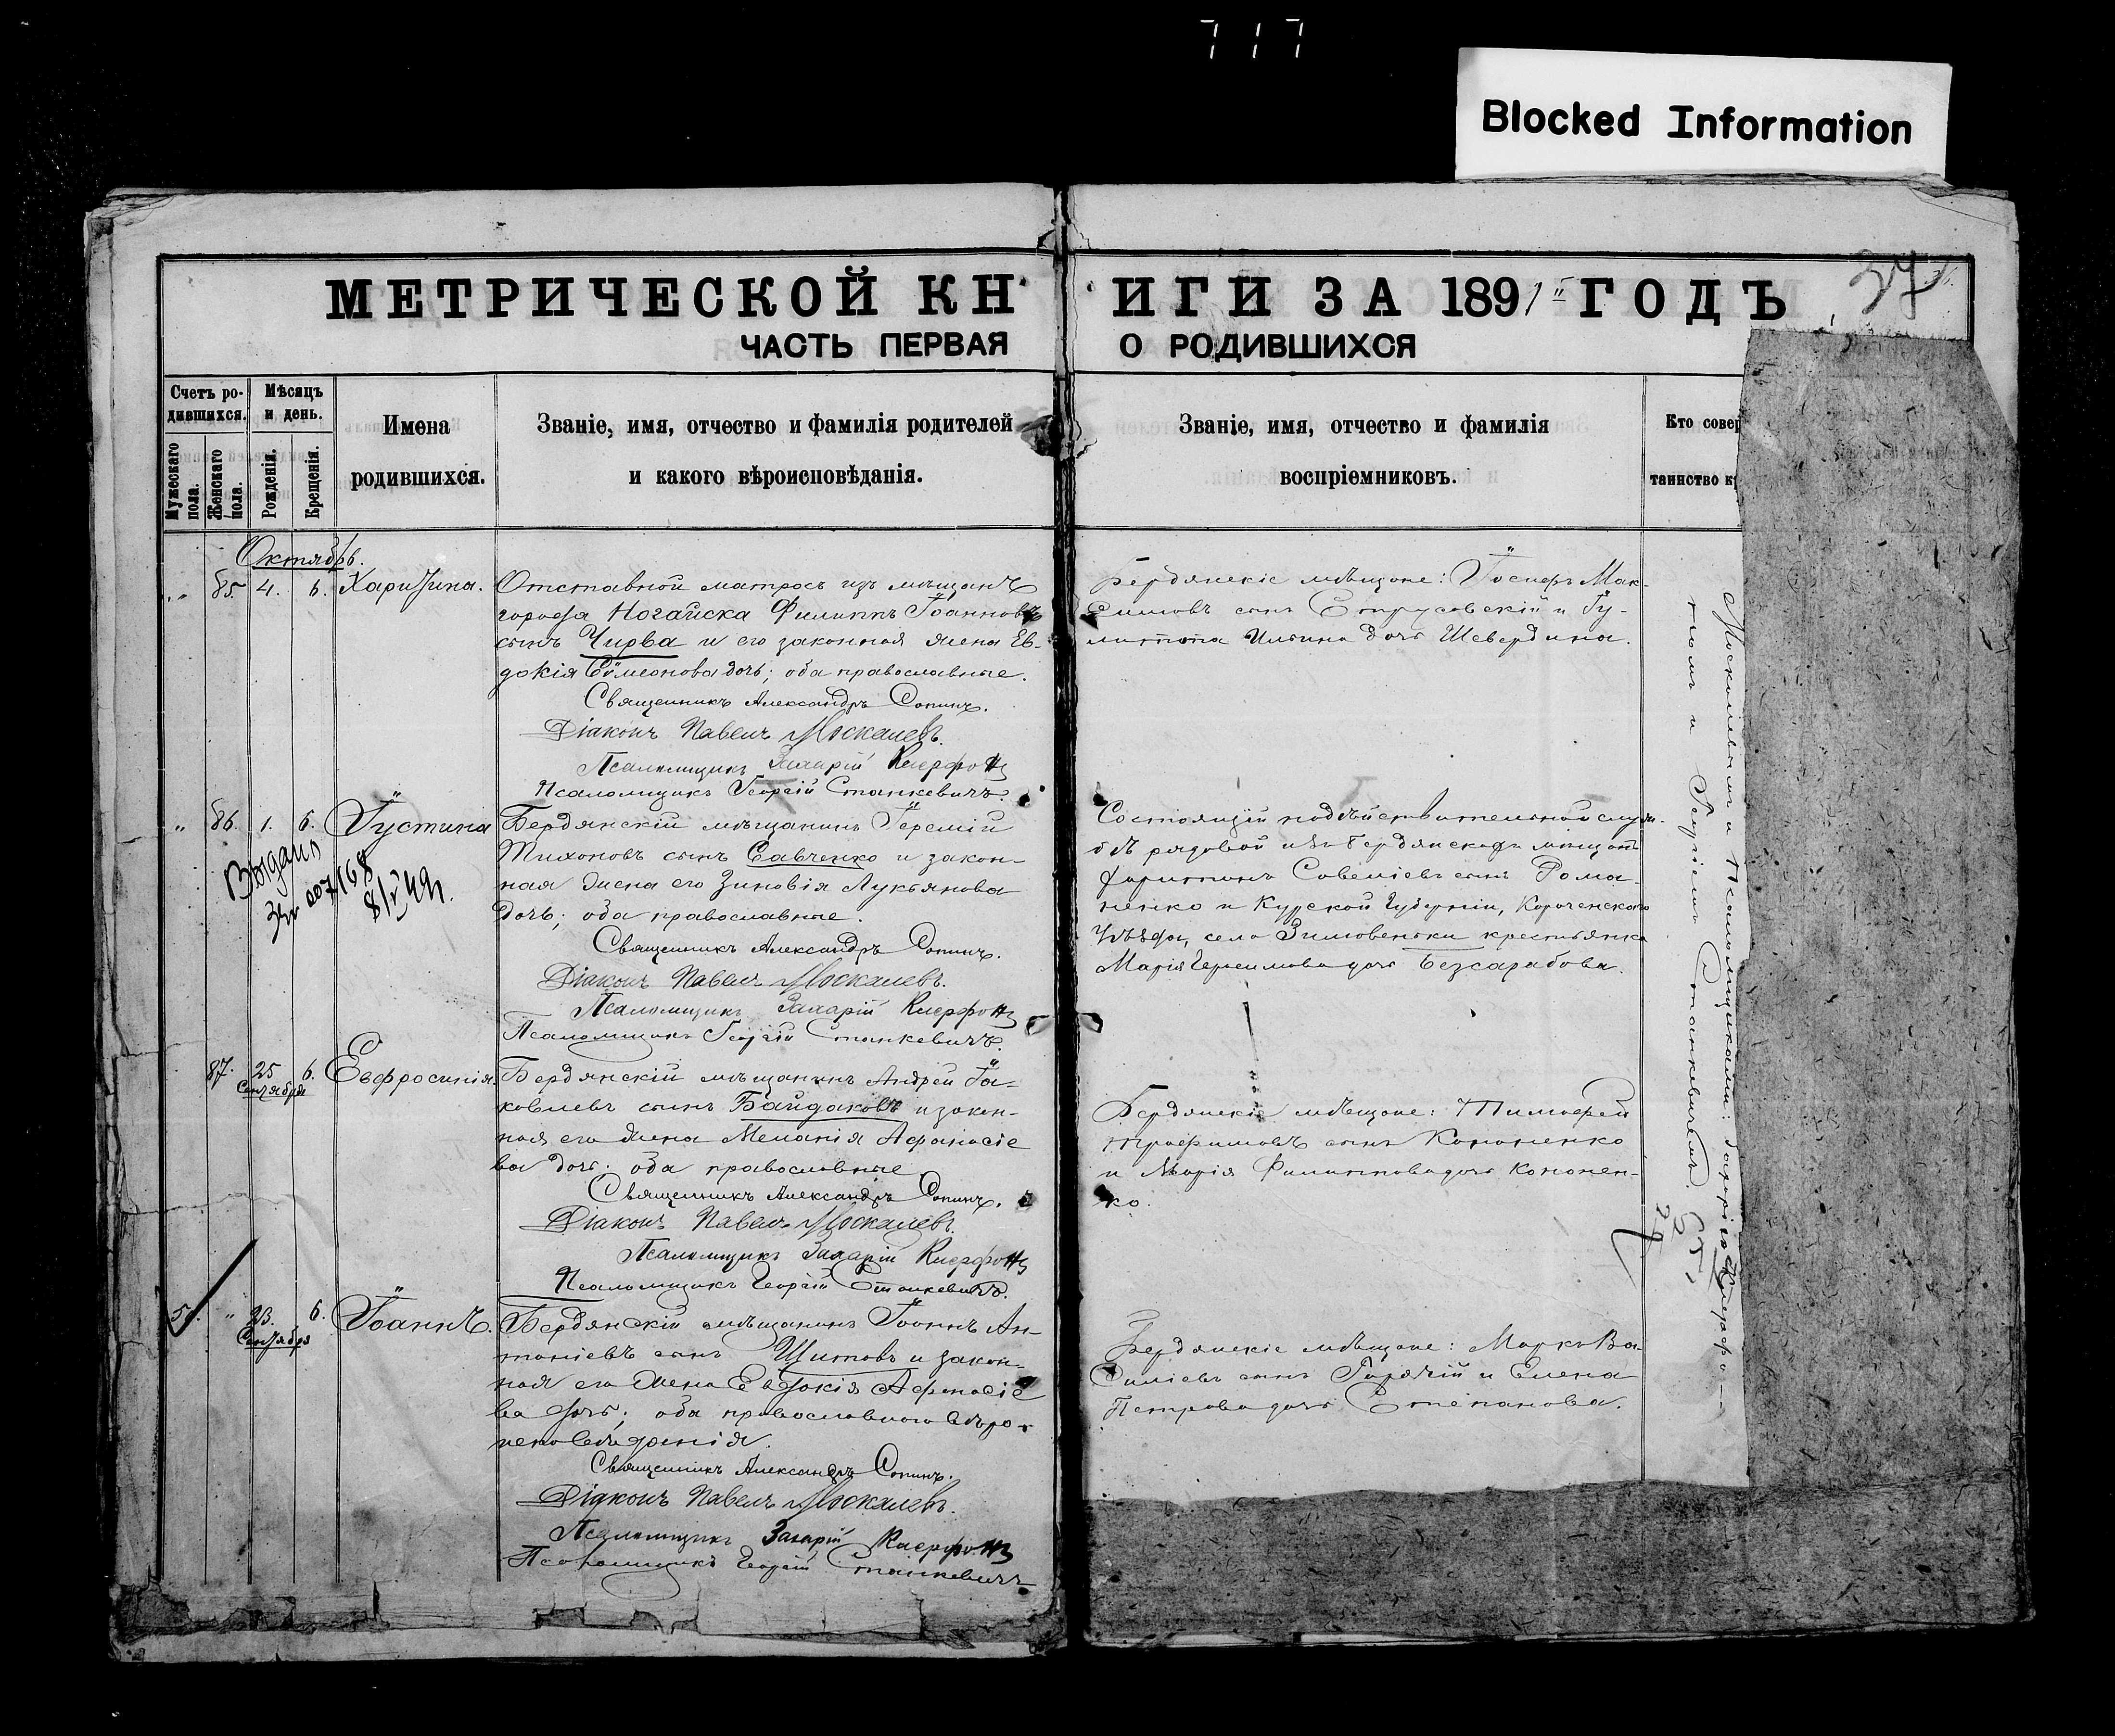 717
Blocked Information
МЕТРИЧЕСКОЙ КНИГИ ЗА 1891 ГОДЪ
37
ЧАСТЬ ПЕРВАЯ О РОДИВШИХСЯ
Счетъ родившихся.
Мужескаго пола.
Женскаго пола.
Мѣсяцъ и день.
Рожденія.
Крещенія.
Имена родившихся.
Званіе, имя, отчество и фамилія родителей
и какого вѣроисповѣданія.
Званіе, имя, отчество и фамилія
воспріемниковъ.
Кто совер
таинство к
Октябрь.
" 85 4. 6. Харитина.
Отставной матросъ изъ мѣщанъ
города Ногайска Филиппъ Іоанновъ
сынъ Чирва и его законная жена Ев-
докія Сѵмеонова дочь; оба православные.
Священникъ Александръ Сопинъ.
Діаконъ Павелъ Москалевъ.
Псаломщикъ Захарій
Псаломщикъ Георгій Станкевичъ.
Бердянскіе мѣщане: Іосифъ Мак-
симовъ сынъ Струсовскій и Іу-
литта Ильина дочь Шевердина.
" 86. 1. 6. Іустина
Выдано
007168
Бердянскій мѣщанинъ Іеремій
Тихоновъ сынъ Савченко и закон-
ная жена его Зиновія Лукьянова
дочь; оба православные.
Священникъ Александръ Сопинъ.
Діаконъ Павелъ Москалевъ.
Псаломщикъ Захарій
Псаломщикъ Георгій Станкевичъ.
Состоящій на дѣйствительной служ-
бѣ рядовой изъ Бердянскихъ мѣщанъ
Савеліевъ сынъ Рома-
ненко и Курской Губерніи, Короченскаго
уѣзда, села Зимовеньки крестьянка
Марія дочь Безсарабова.
87. 25 Сентября 6. Евфросинія.
Бердянскій мѣщанинъ Андрей Іа-
ковлевъ сынъ Байдаковъ и закон-
ная его жена Меланія Афанасіе
ва дочь; оба православные
Священникъ Александръ Сопинъ.
Діаконъ Павелъ Москалевъ.
Псаломщикъ Захарій
Псаломщикъ Георгій Станкевичъ.
Бердянскіе мѣщане: Тимофей
Трофимовъ сынъ Кононенко
и Марія Филиппова дочь Кононен-
ко.
" 23. Сентября 6. Іоаннъ.
Бердянскій мѣщанинъ Іоаннъ Ан-
тоніевъ сынъ Щитовъ и закон-
ная его жена Евдокія Афанасіе
ва дочь; оба православнаго вѣро-
исповѣданія.
Священникъ Александръ Сопинъ.
Діаконъ Павелъ Москалевъ.
Псаломщикъ Захарій
Псаломщикъ Георгій Станкевичъ
Бердянскіе мѣщане: Марко Ва-
силіевъ сынъ Горячій и Елена
Петрова дочь Степанова.
Москалевымъ и Псаломщиками: Захаріемъ
и Георгіемъ Станкевичемъ.